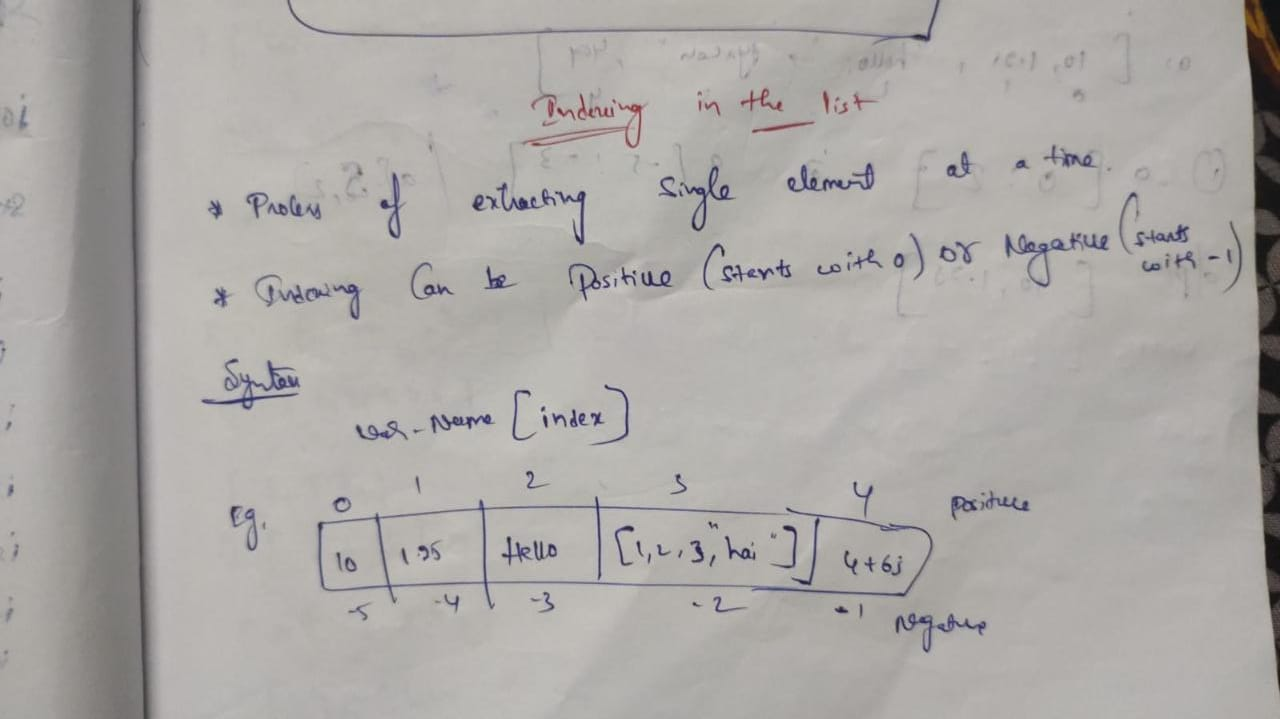 Indexing in the list
* Process of extracting single element at a time.
* Indexing Can be Positive (starts with 0) or Negative (starts with -1)
Syntax
var-Name [index]
0 1 2 3 4 positive
Eg. 10 1.25 Hello [1,2,3,"hai"] 4+6j
-5 -4 -3 -2 -1 Negative